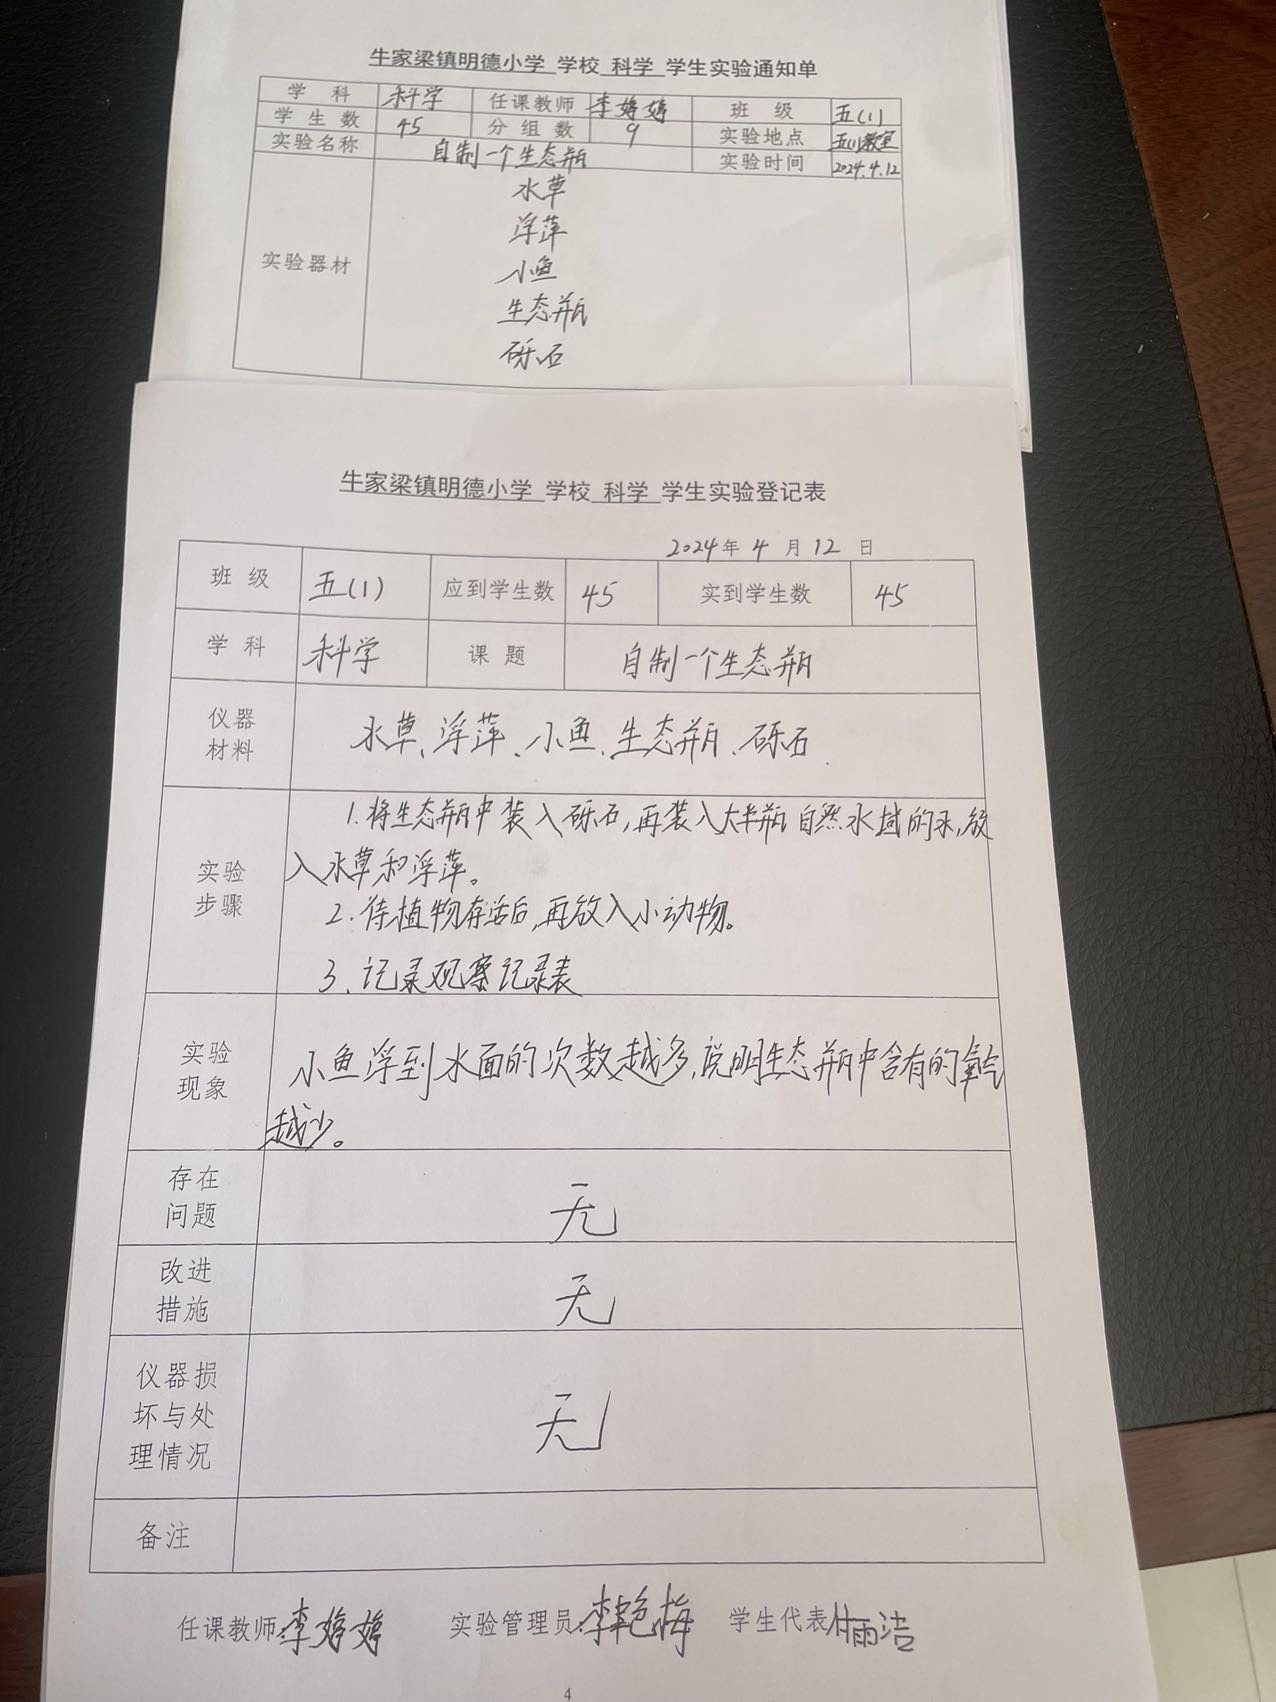 牛家梁镇明德小学 学校 科学 学生实验通知单
学 科 科学 任课教师 李婷婷 班 级 五(1)
学 生 数 45 分 组 数 9 实验地点 五(1)教室
实验名称 自制一个生态瓶 实验时间 2024.4.12
水草
浮萍
实验器材 小鱼
生态瓶
砾石
牛家梁镇明德小学 学校 科学 学生实验登记表
2024年 4 月 12 日
班 级 五(1) 应到学生数 45 实到学生数 45
学 科 科学 课 题 自制一个生态瓶
仪器
材料 水草、浮萍、小鱼、生态瓶、砾石.
1.将生态瓶中装入砾石,再装入大半瓶自然水域的水,放
实验 入水草和浮萍。
步骤 2.待植物存活后,再放入小动物。
3、记录观察记录表
实验
现象 小鱼浮到水面的次数越多,说明生态瓶中含有的氧气
越少。
存在
问题 无
改进
措施 无
仪器损
坏与处 无
理情况
备注
任课教师 李婷婷 实验管理员 李艳梅 学生代表 雨洁
4